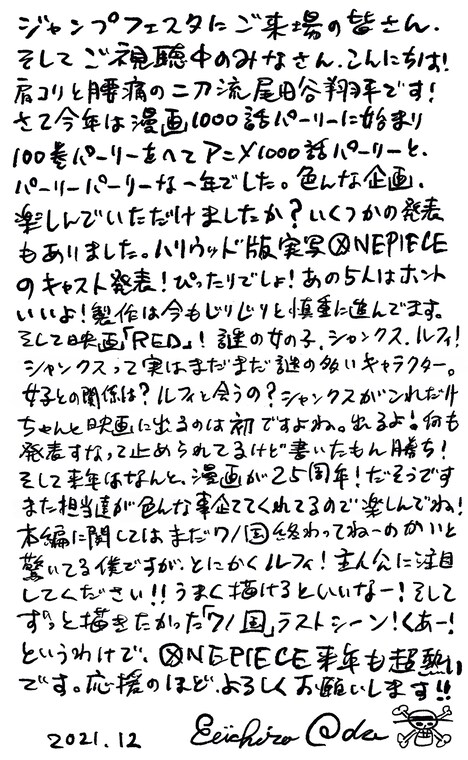 ジャンプフェスタにご来場の皆さん.
そしてご視聴中のみなさん. こんにちは!
肩コリと腰痛の二刀流尾田谷翔平です!
さて今年は漫画1000話パーリーに始まり
100巻パーリーをへてアニメ1000話パーリーと、
パーリーパーリーな一年でした。色んな企画.
楽しんでいただけましたか?いくつかの発表
もありました。ハリウッド版実写ONEPIECE
のキャスト発表!ぴったりでしょ!あの5人はホント
いいよ!製作は今もじりじりと慎重に進んでます。
そして映画「RED」! 謎の女の子. シャンクス. ルフィ!
シャンクスって実はまだまだ謎の多いキャラクター。
女子との関係は?ルフィと会うの?シャンクスがこれだけ
ちゃんと映画に出るのは初ですよね。出るよ!何も
発表すなって止められてるけど書いたもん勝ち!
そして来年はなんと、漫画が25周年!だそうです
また担当達が色んな事企ててくれてるので楽しんでね!
本編に関してはまだワノ国終わってねーのかいと
驚いてる僕ですが、とにかくルフィ!主人公に注目
してください!!うまく描けるといいなー!そして
ずっと描きたかった「ワノ国」ラストシーン!くあー!
というわけで、ONEPIECE来年も超熱い
です。応援のほど、よろしくお願いします!!
2021.12 Eiichiro Oda